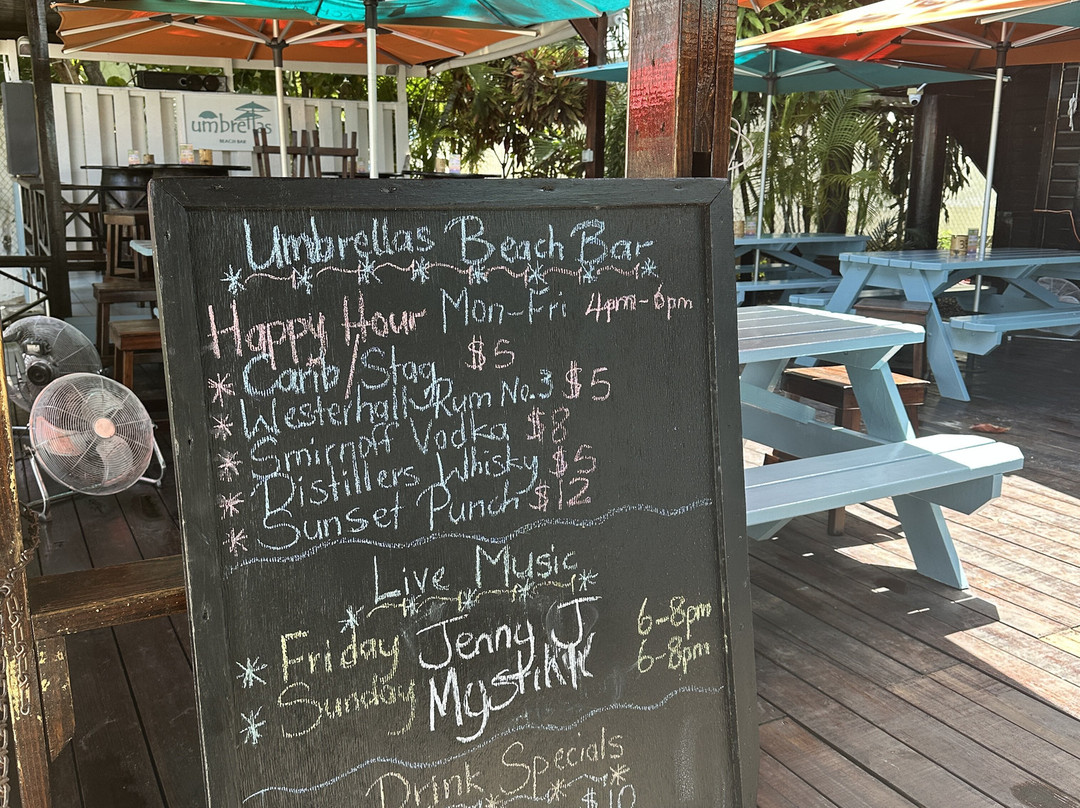 umbrellas
BEACH BAR
Umbrellas Beach Bar
Happy Hour Mon-Fri 4pm-6pm
* Carib/Stag $5
* Westerhall Rum No.3 $5
* Smirnoff Vodka $8
* Distillers Whisky $5
* Sunset Punch $12
Live Music
* Friday Jenny J. 6-8pm
* Sunday Mystikk 6-8pm
Drink Specials
$10